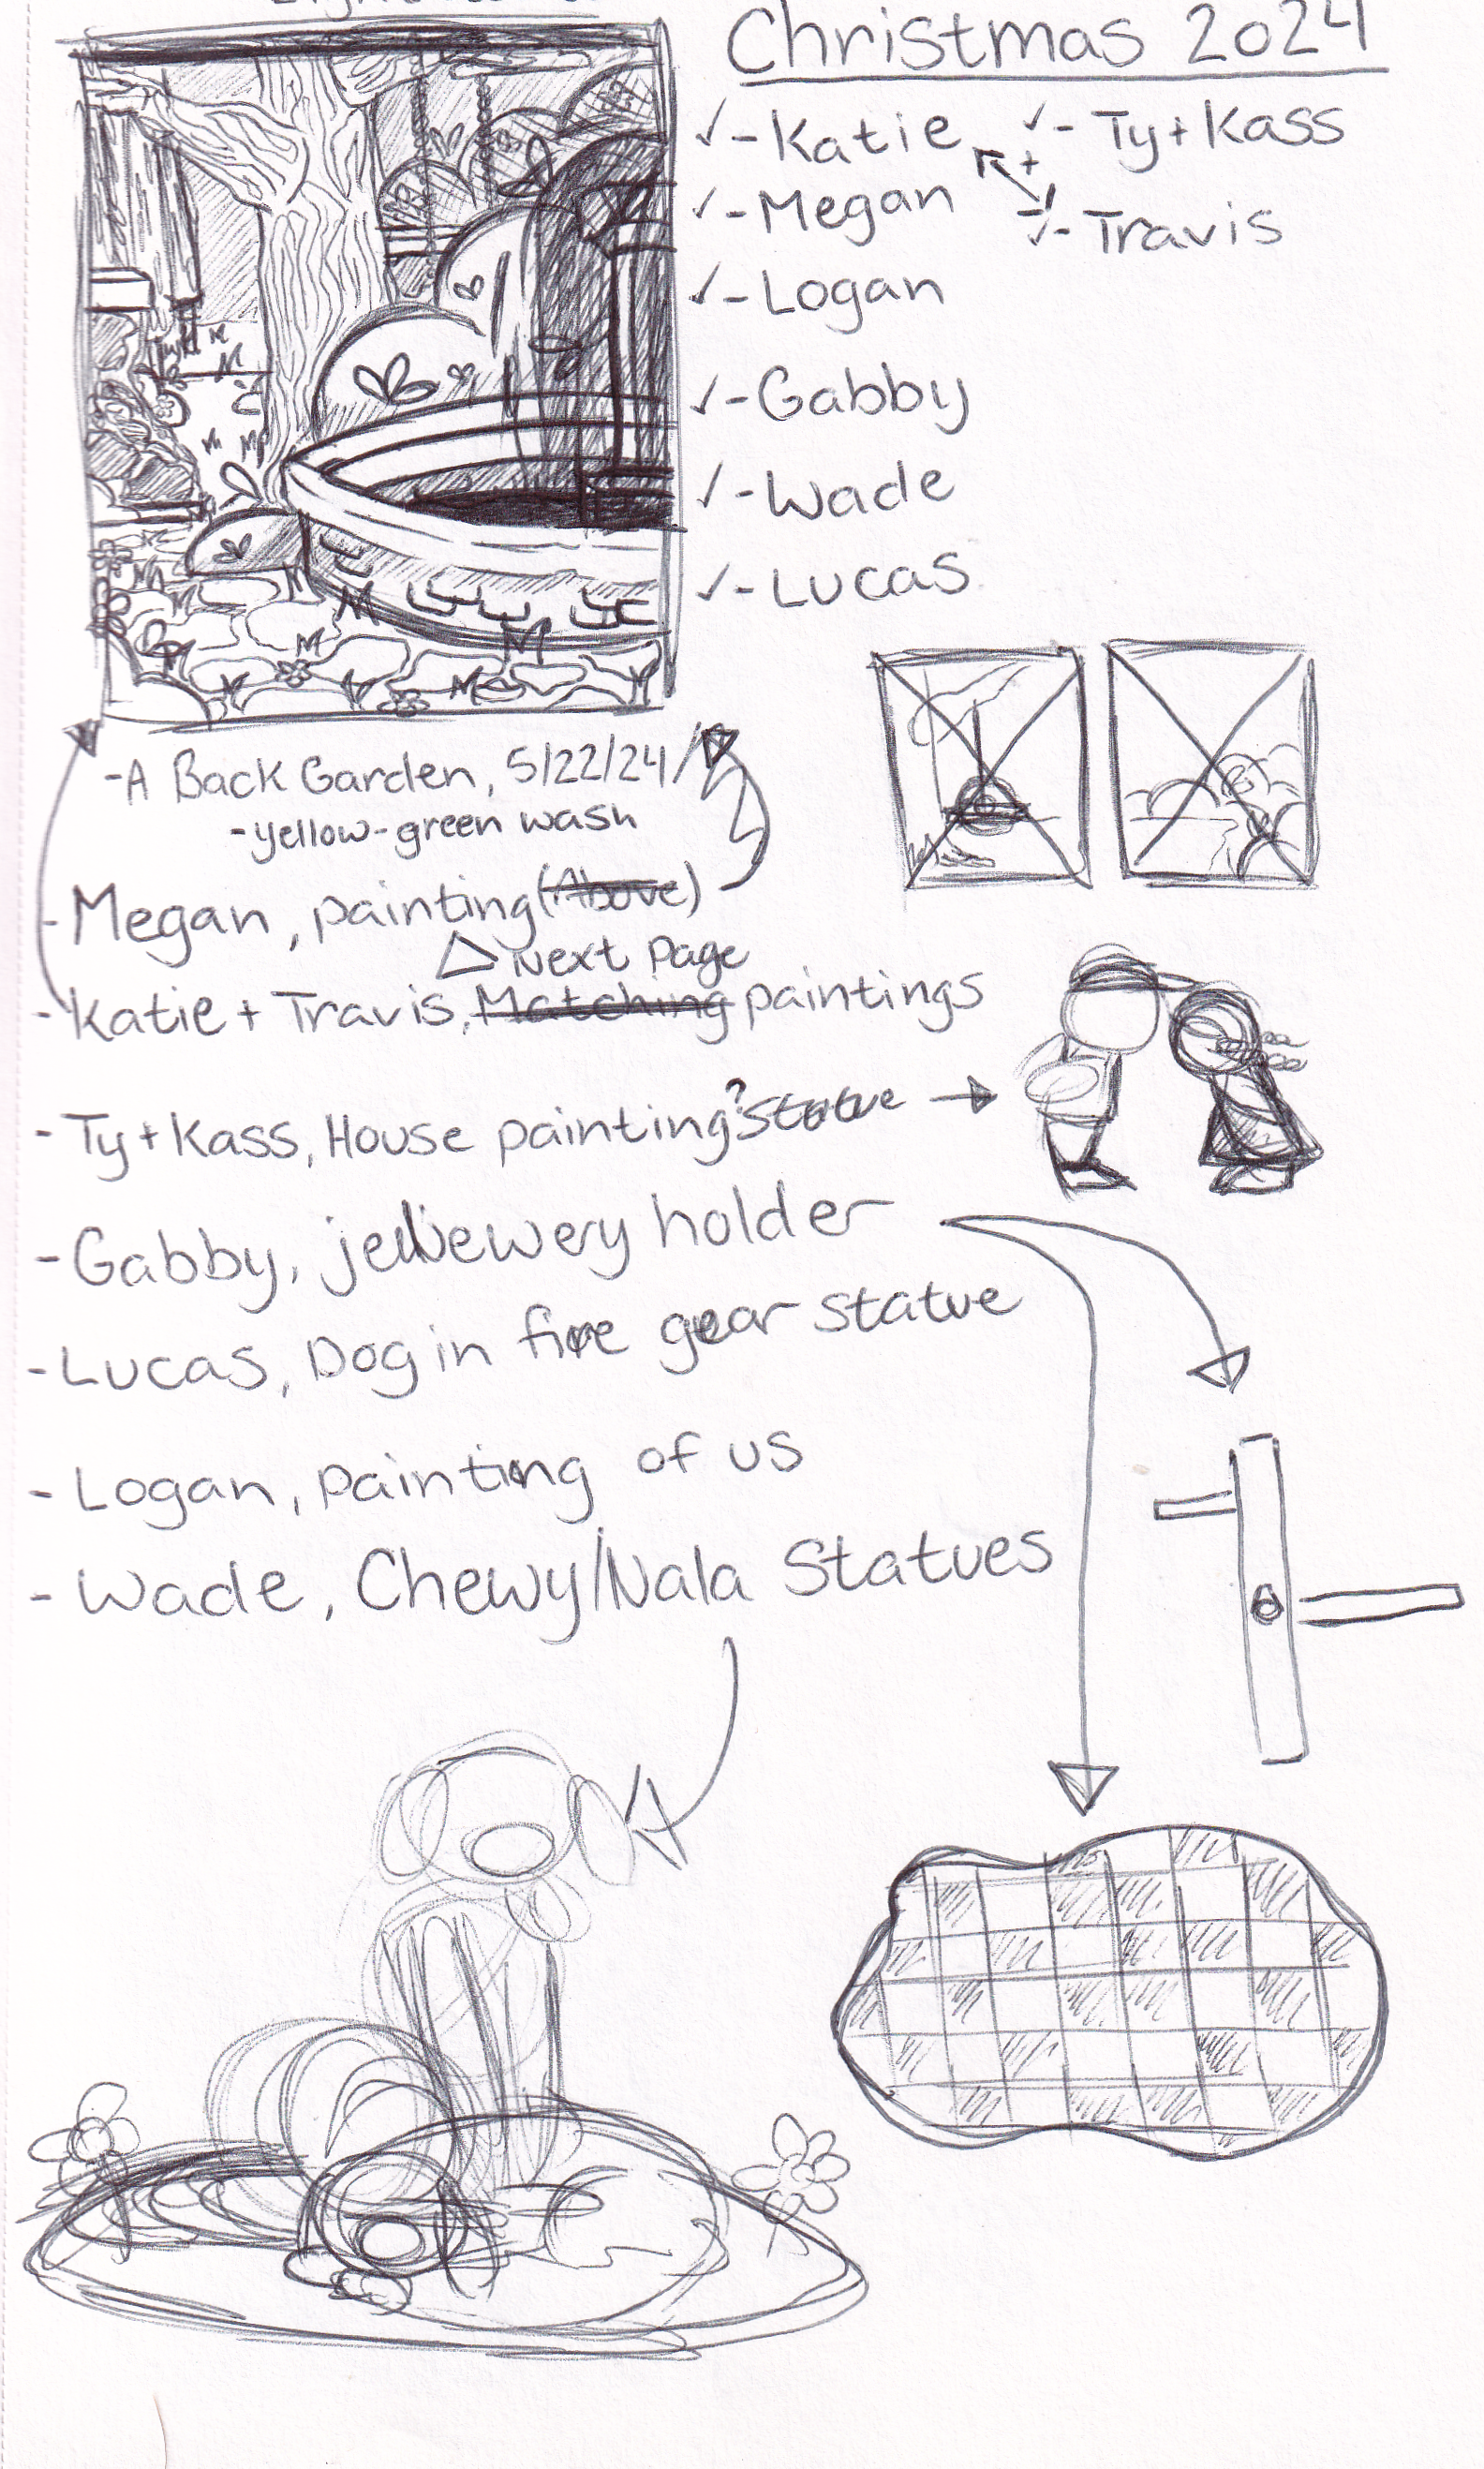 Christmas 2024
✓-Katie ✓- Ty+Kass
+
✓-Megan ✓- Travis
✓-Logan
✓-Gabby
✓-Wade
✓-Lucas
-A Back Garden, 5/22/24/
-yellow-green wash
-Megan, painting (Above)
Next Page
-Katie + Travis, Matching paintings
-Ty+Kass, House painting? Statue
-Gabby, jewewery holder
-Lucas, Dog in fire gear statue
-Logan, painting of us
-Wade, Chewy/Nala Statues